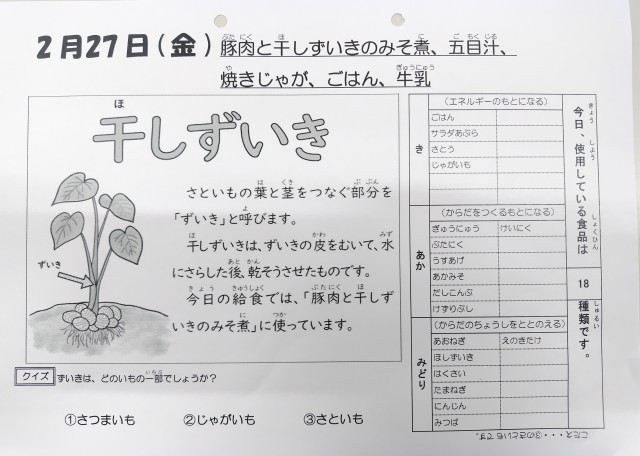 2月27日(金)豚肉と干しずいきのみそ煮、五目汁、
焼きじゃが、ごはん、牛乳
干しずいき
さといもの葉と茎をつなぐ部分を
「ずいき」と呼びます。
干しずいきは、ずいきの皮をむいて、水
にさらした後、乾そうさせたものです。
今日の給食では、「豚肉と干しず
いきのみそ煮」に使っています。
ずいき
クイズ ずいきは、どのいもの一部でしょうか?
①さつまいも ②じゃがいも ③さといも
き
(エネルギーのもとになる)
ごはん
サラダあぶら
さとう
じゃがいも
あか
(からだをつくるもとになる)
ぎゅうにゅう けいにく
ぶたにく
うすあげ
あかみそ
だしこんぶ
けずりぶし
みどり
(からだのちょうしをととのえる)
あおねぎ えのきたけ
ほしずいき
はくさい
たまねぎ
にんじん
みつば
今日、使用している食品は
18
種類です。
こたえ・・・③のさといもです。